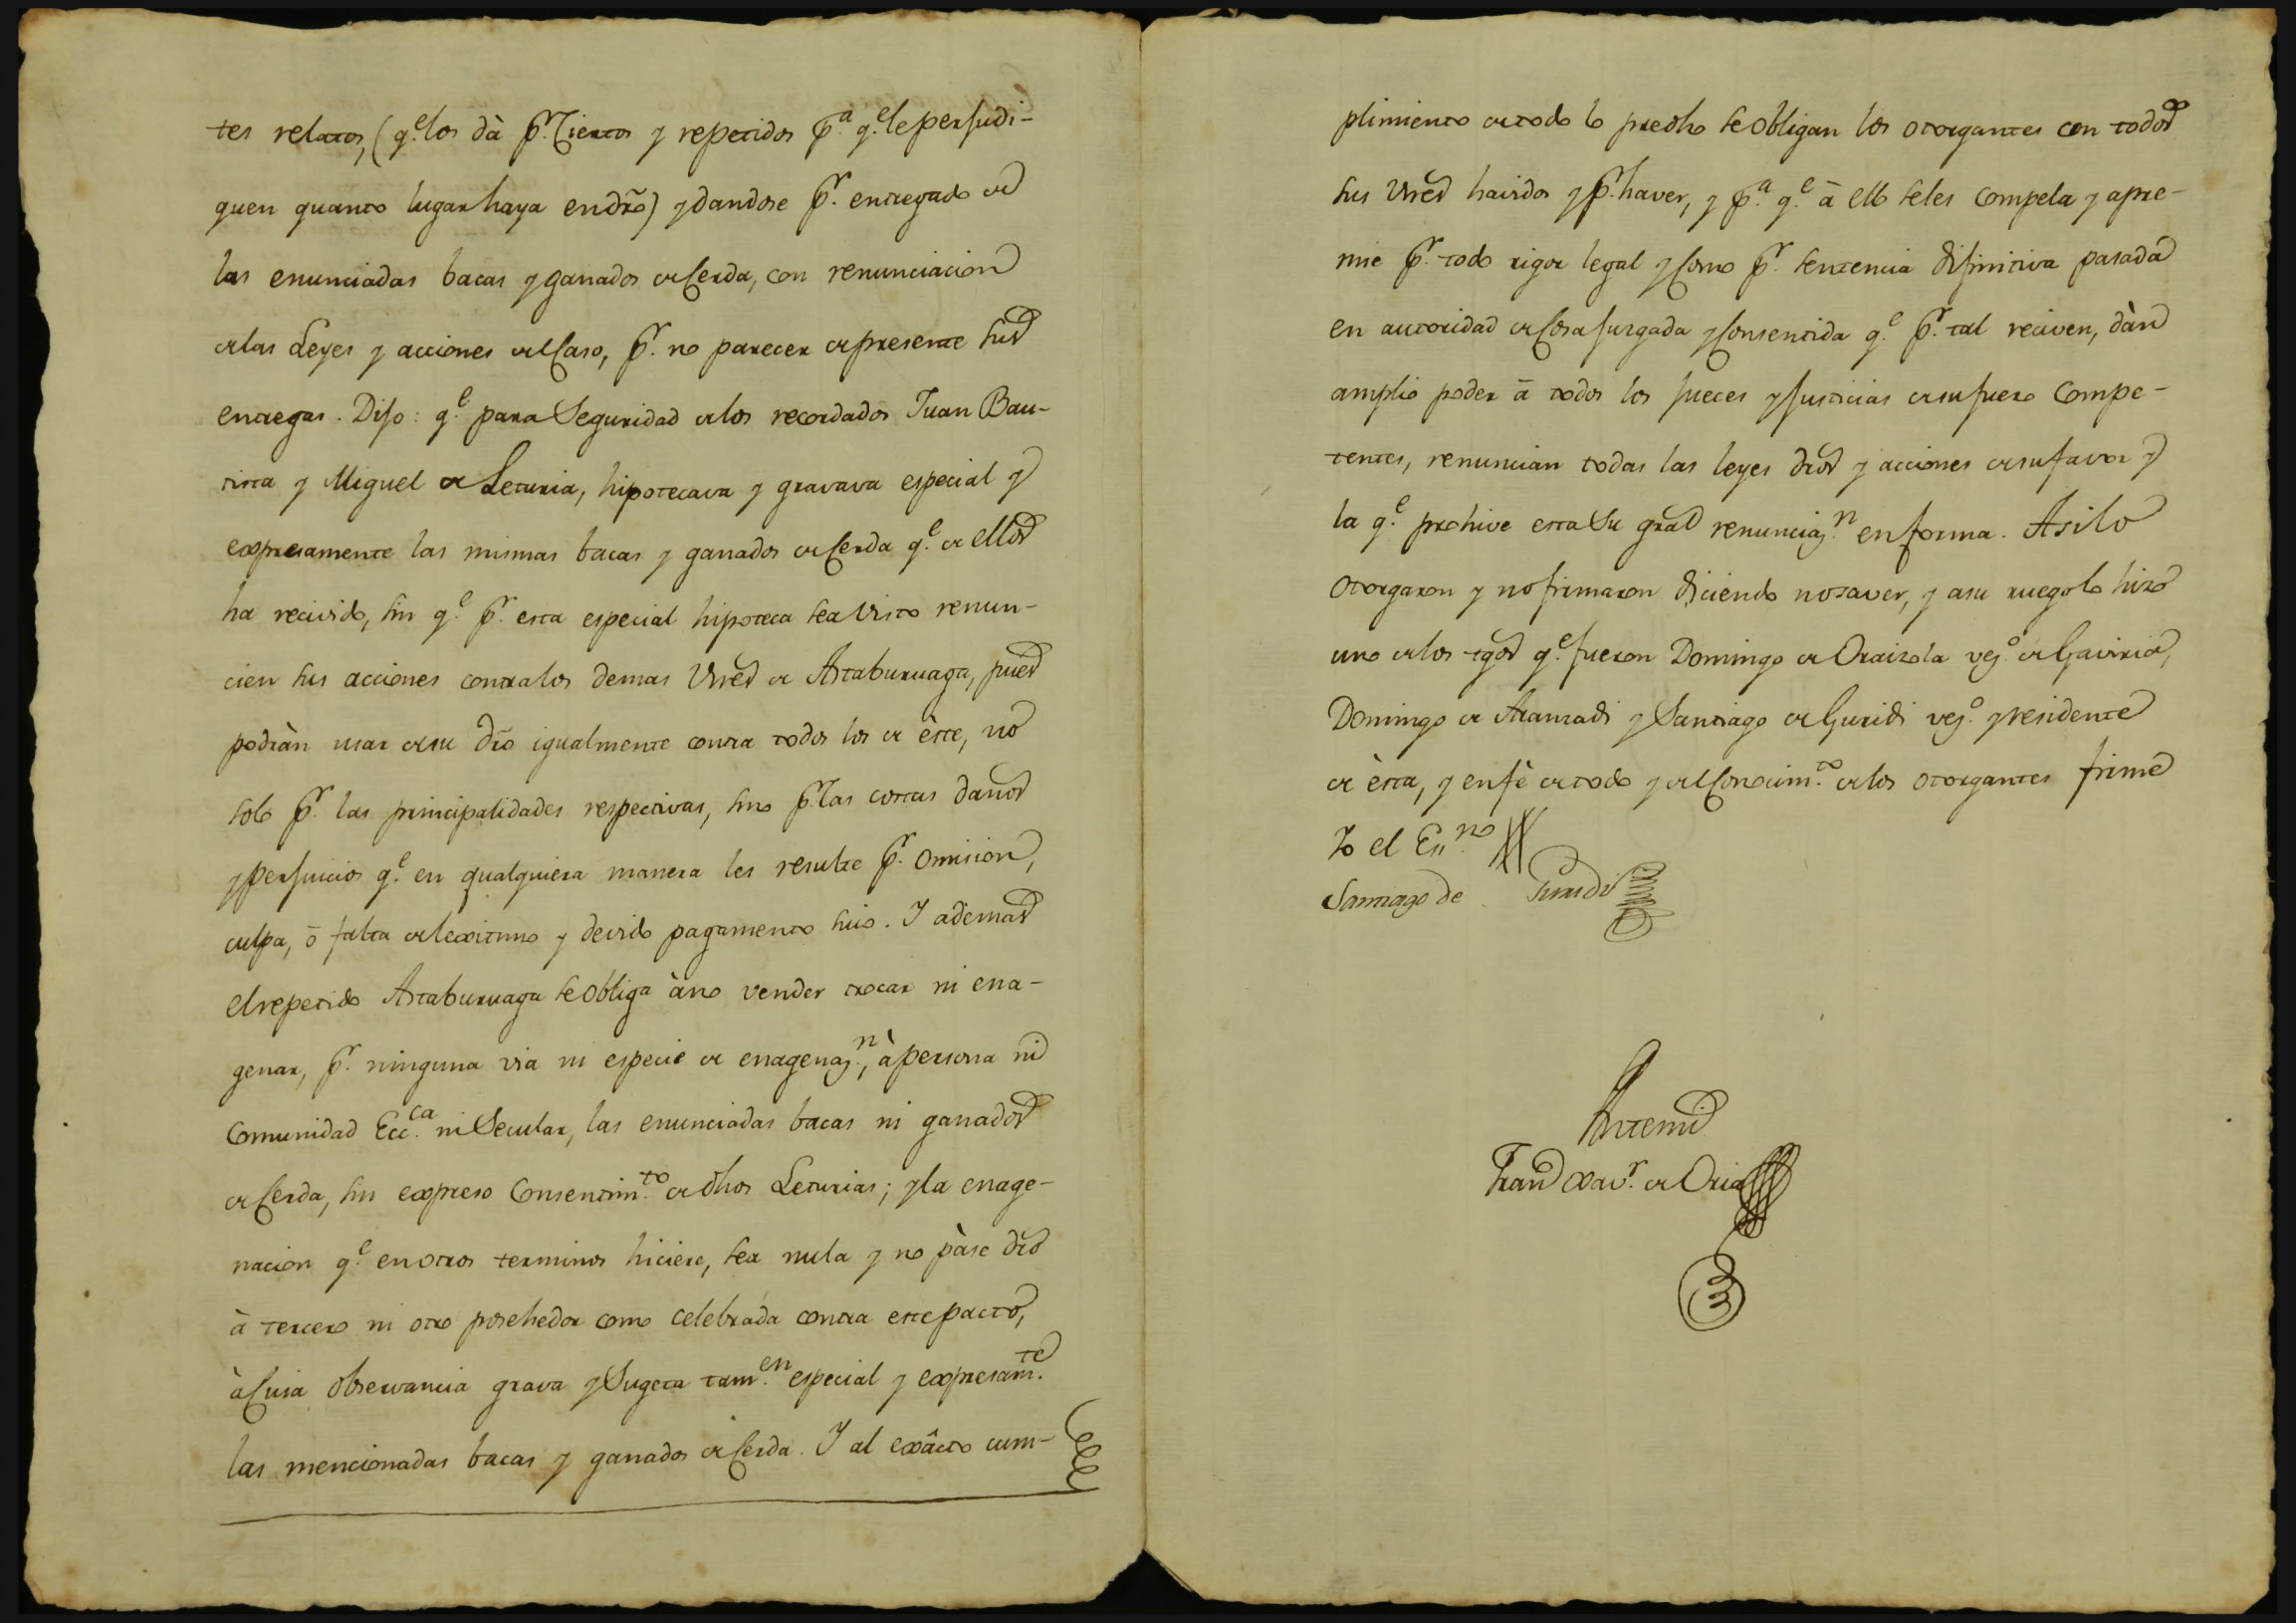 tes relatos, (q.e los dà p.r Ciertos y repetidos p.a q.e le perjudi-
quen quanto lugar haya en dro) y dandose p.r entregado de
las enunciadas bacas y ganados de Cerda, con renunciacion
de las Leyes y acciones del Caso, p.r no parecer de presente sus
entregas. Dijo: q.e para Seguridad de los recordados Juan Bau-
tista y Miguel de Leturia, hipotecava y gravava especial y
expresamente las mismas bacas y ganados de Cerda q.e de ellos
ha recivido, sin q.e p.r esta especial hipoteca sea visto renun-
cien sus acciones contra los demas vnes de Astaburuaga, pues
podràn usar de su dro igualmente contra todos los de èste, no
solo p.r las principalidades respectivas, sino p.r las costas daños
y perjuicios q.e en qualquiera manera les resulte p.r omision,
culpa, ò falta del exitimo y devido pagamento suio. I ademas
el repetido Astaburuaga se obliga à no vender trocar ni ena-
genar, p.r ninguna via ni especie de enagenaz.n, à persona ni
Comunidad Ecc.ca ni Secular, las enunciadas bacas ni ganados
de Cerda, sin expreso Consentim.to de dhos Leturias; y la enage-
nacion q.e en otros terminos hiciere, sea nula y no pàse dro
à tercero ni otro posehedor como celebrada contra este pacto,
à Cuia observancia grava y Sugeta tam.en especial y expresam.te
las mencionadas bacas y ganados de Cerda. I al exâcto cum-
plimiento de todo lo predho se obligan los otorgantes con todos
sus vnes havidos y p.r haver, y p.a q.e à ello se les Compela y apre-
mie p.r todo rigor legal y Como p.r sentencia difinitiva pasada
en autoridad de Cosa juzgada y Consentida q.e p.r tal reciven, dàn
amplio poder à todos los jueces y justicias de su fuero Compe-
tentes, renuncian todas las leyes dros y acciones de su favor y
la q.e prohive esta Su gral renunciaz.n en forma. Asi lo
otorgaron y no firmaron diciendo no saver, y a su ruego lo hizo
uno de los tgos q.e fueron Domingo de Oraizola vez.o de Gaviria,
Domingo de Aranzadi y Santiago de Guridi vez.o y residente
de èsta, y en fè de todo y del Conocim.to de los otorgantes firme
Yo el Esn.no
Santiago de Guridi
Antemi
Fran Xav.r de Oria